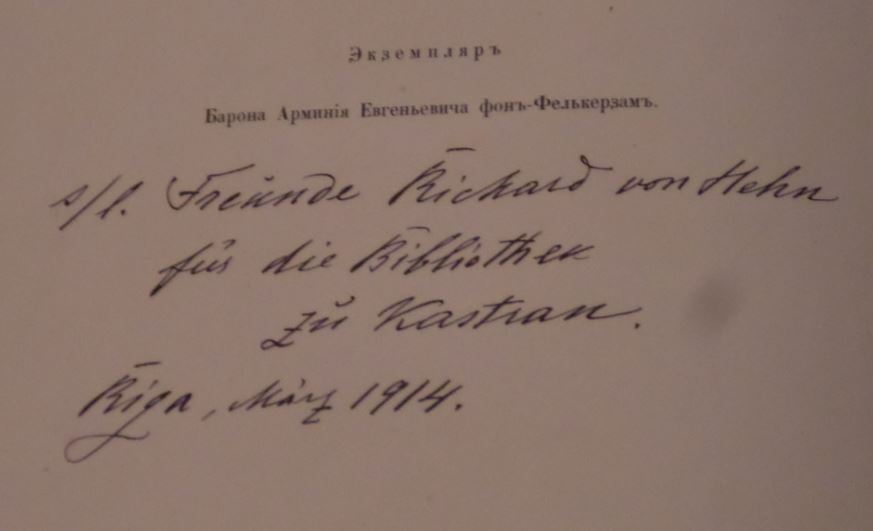 Экземпляръ
Барона Арминія Евгеньевича фонъ-Фелькерзамъ.
s/l. Freunde Richard von Hehn
für die Bibliothek
zu Kastran.
Riga, März 1914.